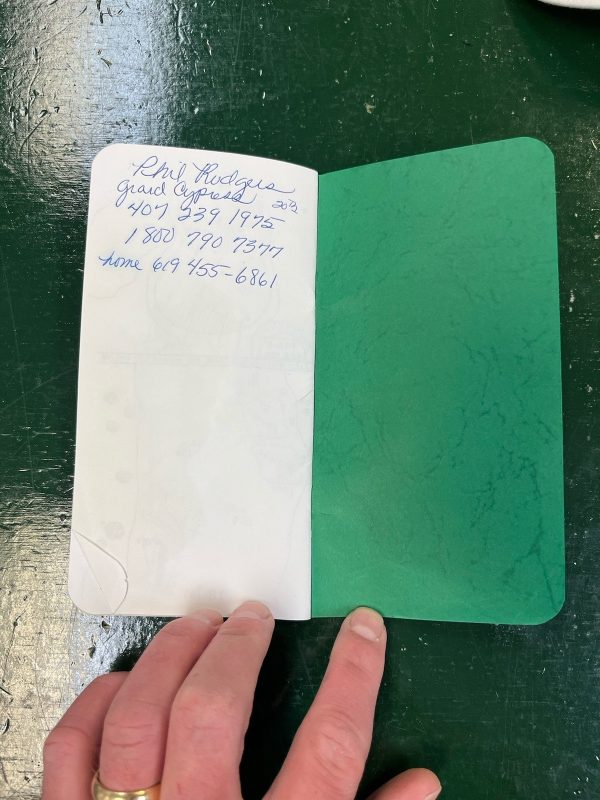 Phil Rodgers
Grand Cypress
407 239 1975
1 800 790 7377
home 619 455-6861